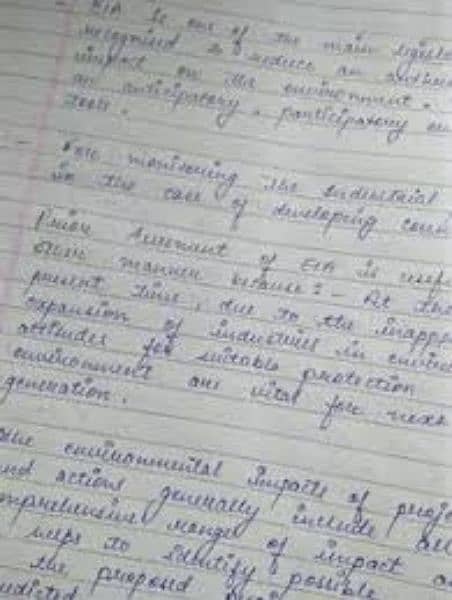 - EIA is one of the main
recognised to reduce an
impact on the environment.
an anticipatory, participatory
tool.
- For monitoring the industrial
in the case of developing
Prior Assessment of EIA is
manner because :- At the
present time, due to the
expansion of industries in
attitudes for suitable protection
environment are vital for next
generation.
The environmental impacts of
and actions generally include all
range of impact
helps to identify possible
the proposed